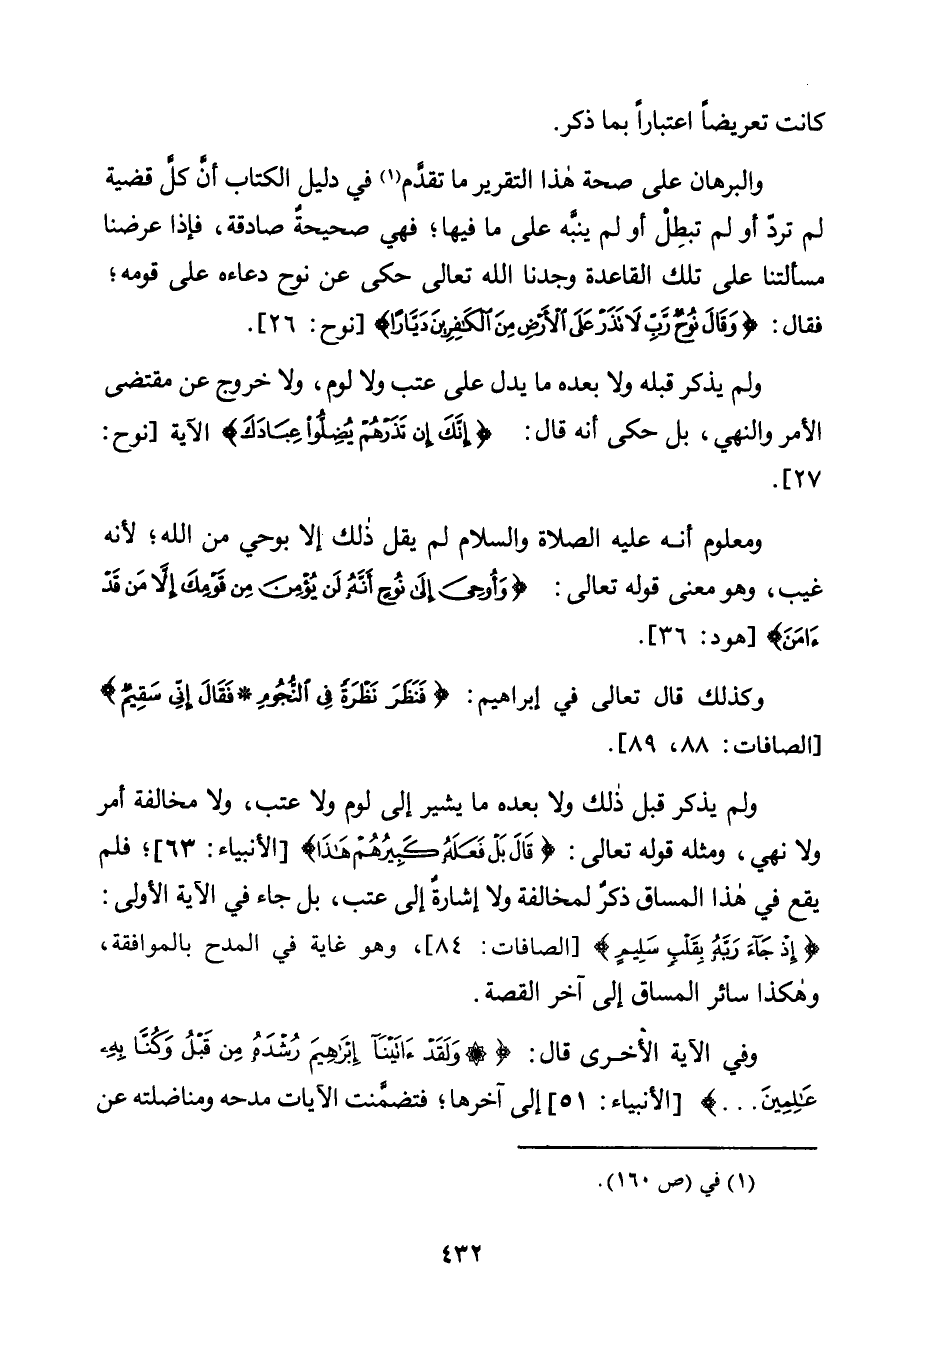 كانت تعريضاً اعتباراً بما ذكر.
والبرهان على صحة هٰذا التقرير ما تقدَّم(١) في دليل الكتاب أنَّ كلَّ قضية
لم تردّ أو لم تبطِلْ أو لم ينبَّه على ما فيها؛ فهي صحيحةٌ صادقة، فإذا عرضنا
مسألتنا على تلك القاعدة وجدنا الله تعالى حكى عن نوح دعاءه على قومه؛
فقال: ﴿وَقَالَ نُوحٌ رَّبِّ لَا تَذَرْ عَلَى ٱلْأَرْضِ مِنَ ٱلْكَٰفِرِينَ دَيَّارًا﴾ [نوح: ٢٦].
ولم يذكر قبله ولا بعده ما يدل على عتب ولا لوم، ولا خروج عن مقتضى
الأمر والنهي، بل حكى أنه قال: ﴿إِنَّكَ إِن تَذَرْهُمْ يُضِلُّوا۟ عِبَادَكَ﴾ الآية [نوح:
٢٧].
ومعلوم أنه عليه الصلاة والسلام لم يقل ذٰلك إلا بوحي من الله؛ لأنه
غيب، وهو معنى قوله تعالى: ﴿وَأُوحِىَ إِلَىٰ نُوحٍ أَنَّهُۥ لَن يُؤْمِنَ مِن قَوْمِكَ إِلَّا مَن قَدْ
ءَامَنَ﴾ [هود: ٣٦].
وكذلك قال تعالى في إبراهيم: ﴿فَنَظَرَ نَظْرَةً فِى ٱلنُّجُومِ * فَقَالَ إِنِّى سَقِيمٌ﴾
[الصافات: ٨٨، ٨٩].
ولم يذكر قبل ذٰلك ولا بعده ما يشير إلى لوم ولا عتب، ولا مخالفة أمر
ولا نهي، ومثله قوله تعالى: ﴿قَالَ بَلْ فَعَلَهُۥ كَبِيرُهُمْ هَٰذَا﴾ [الأنبياء: ٦٣]؛ فلم
يقع في هٰذا المساق ذكرٌ لمخالفة ولا إشارةٌ إلى عتب، بل جاء في الآية الأولى:
﴿إِذْ جَآءَ رَبَّهُۥ بِقَلْبٍ سَلِيمٍ﴾ [الصافات: ٨٤]، وهو غاية في المدح بالموافقة،
وهٰكذا سائر المساق إلى آخر القصة.
وفي الآية الأخرى قال: ﴿۞ وَلَقَدْ ءَاتَيْنَآ إِبْرَٰهِيمَ رُشْدَهُۥ مِن قَبْلُ وَكُنَّا بِهِۦ
عَٰلِمِينَ...﴾ [الأنبياء: ٥١] إلى آخرها؛ فتضمَّنت الآيات مدحه ومناضلته عن
(١) في (ص ١٦٠).
٤٣٢